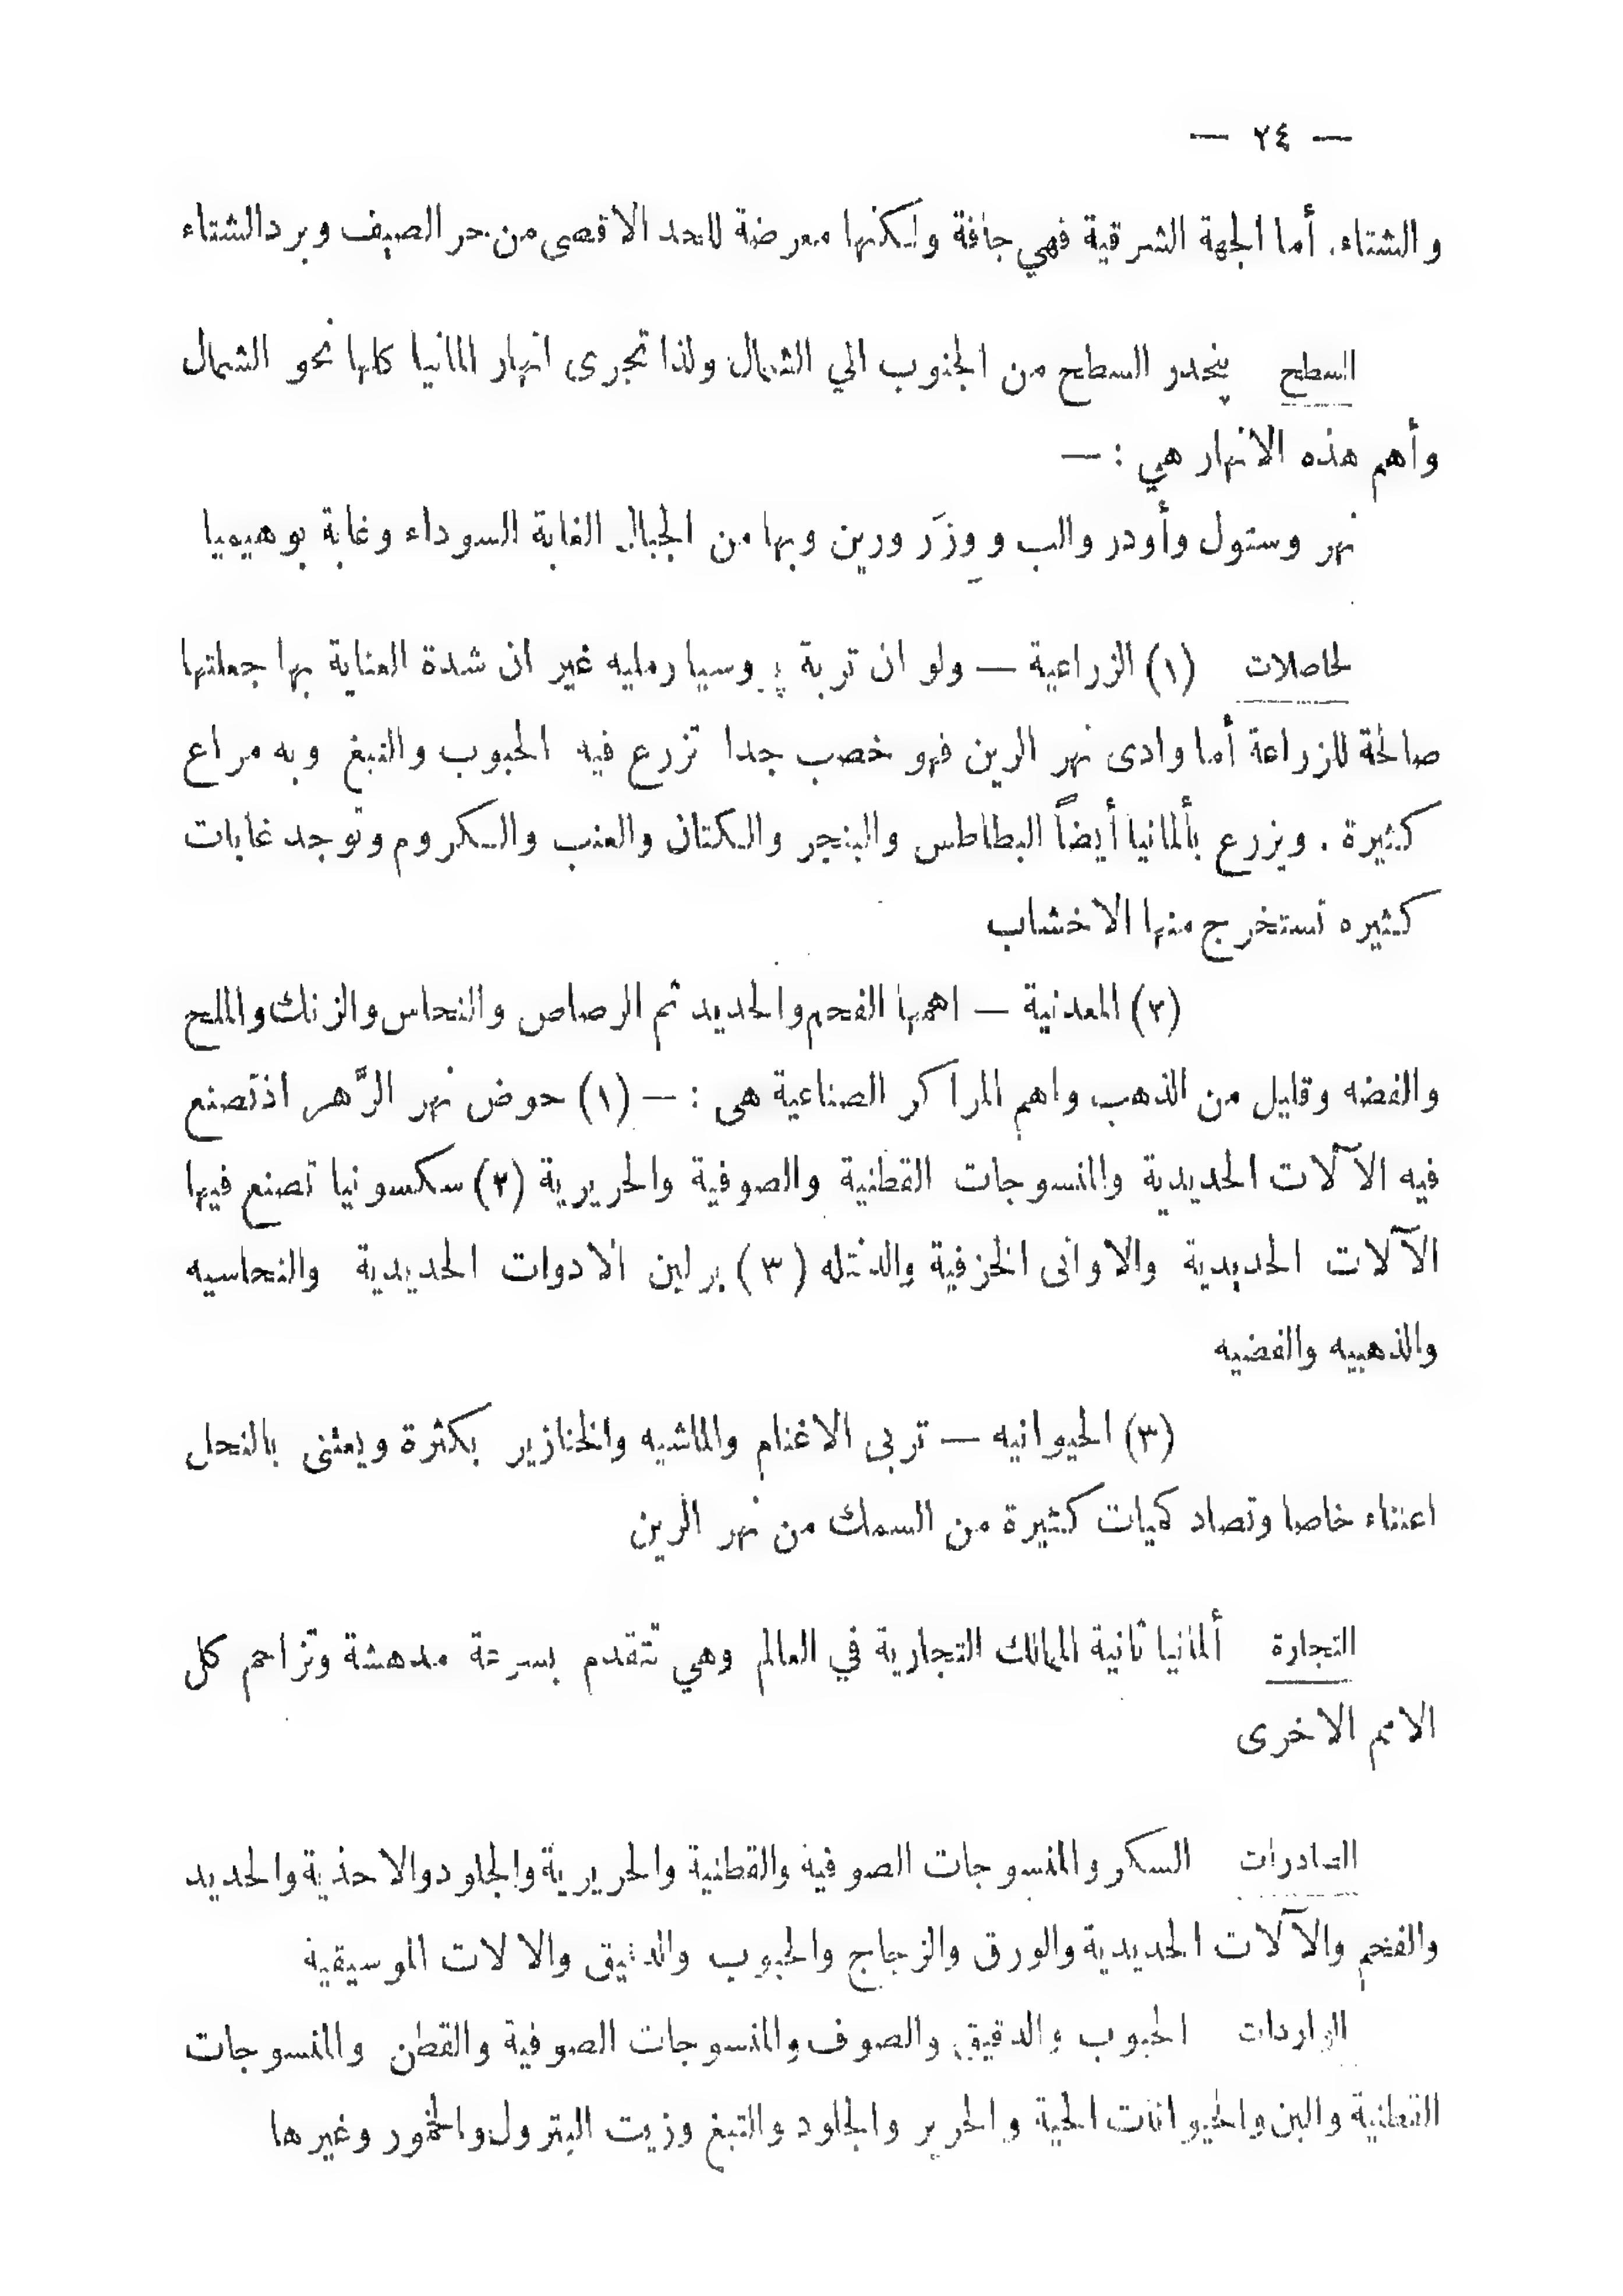 — ٢٤ —
والشتاء. أما الجهة الشرقية فهي جافة ولكنها معرضة للحد الاقصى من حر الصيف وبرد الشتاء
السطح ينحدر السطح من الجنوب الي الشمال ولذا تجرى انهار المانيا كلها نحو الشمال
وأهم هذه الانهار هي : —
نهر وستول وأودر والب و وِزَر ورين وبها من الجبال الغابة السوداء وغابة بوهيميا
لحاصلات (١) الزراعية — ولو ان تربة بروسيا رمليه غير ان شدة العناية بها جعلتها
صالحة للزراعة أما وادى نهر الرين فهو خصب جدا تزرع فيه الحبوب والتبغ وبه مراع
كثيرة . ويزرع بألمانيا أيضاً البطاطس والبنجر والكتان والعنب والكروم وتوجد غابات
كثيره تستخرج منها الاخشاب
(٢) المعدنية — اهمها الفحم والحديد ثم الرصاص والنحاس والزنك والملح
والفضه وقليل من الذهب واهم المراكز الصناعية هى : — (١) حوض نهر الرَّهر اذ تصنع
فيه الآلات الحديدية والمنسوجات القطنية والصوفية والحريرية (٢) سكسونيا تصنع فيها
الآلات الحديدية والاوانى الخزفية والدنتله (٣) برلين الادوات الحديدية والنحاسيه
والذهبيه والفضيه
(٣) الحيوانيه — تربى الاغنام والماشيه والخنازير بكثرة ويعتنى بالنحل
اعتناء خاصا وتصاد كميات كثيرة من السمك من نهر الرين
التجارة ألمانيا ثانية الممالك التجارية في العالم وهي تتقدم بسرعة مدهشة وتزاحم كل
الامم الاخرى
الصادرات السكر والمنسوجات الصوفية والقطنية والحريرية والجلود والاحذية والحديد
والفحم والآلات الحديدية والورق والزجاج والحبوب والدقيق والالات الموسيقية
الواردات الحبوب والدقيق والصوف والمنسوجات الصوفية والقطن والمنسوجات
القطنية والبن والحيوانات الحية والحرير والجلود والتبغ وزيت البترول والخمور وغيرها